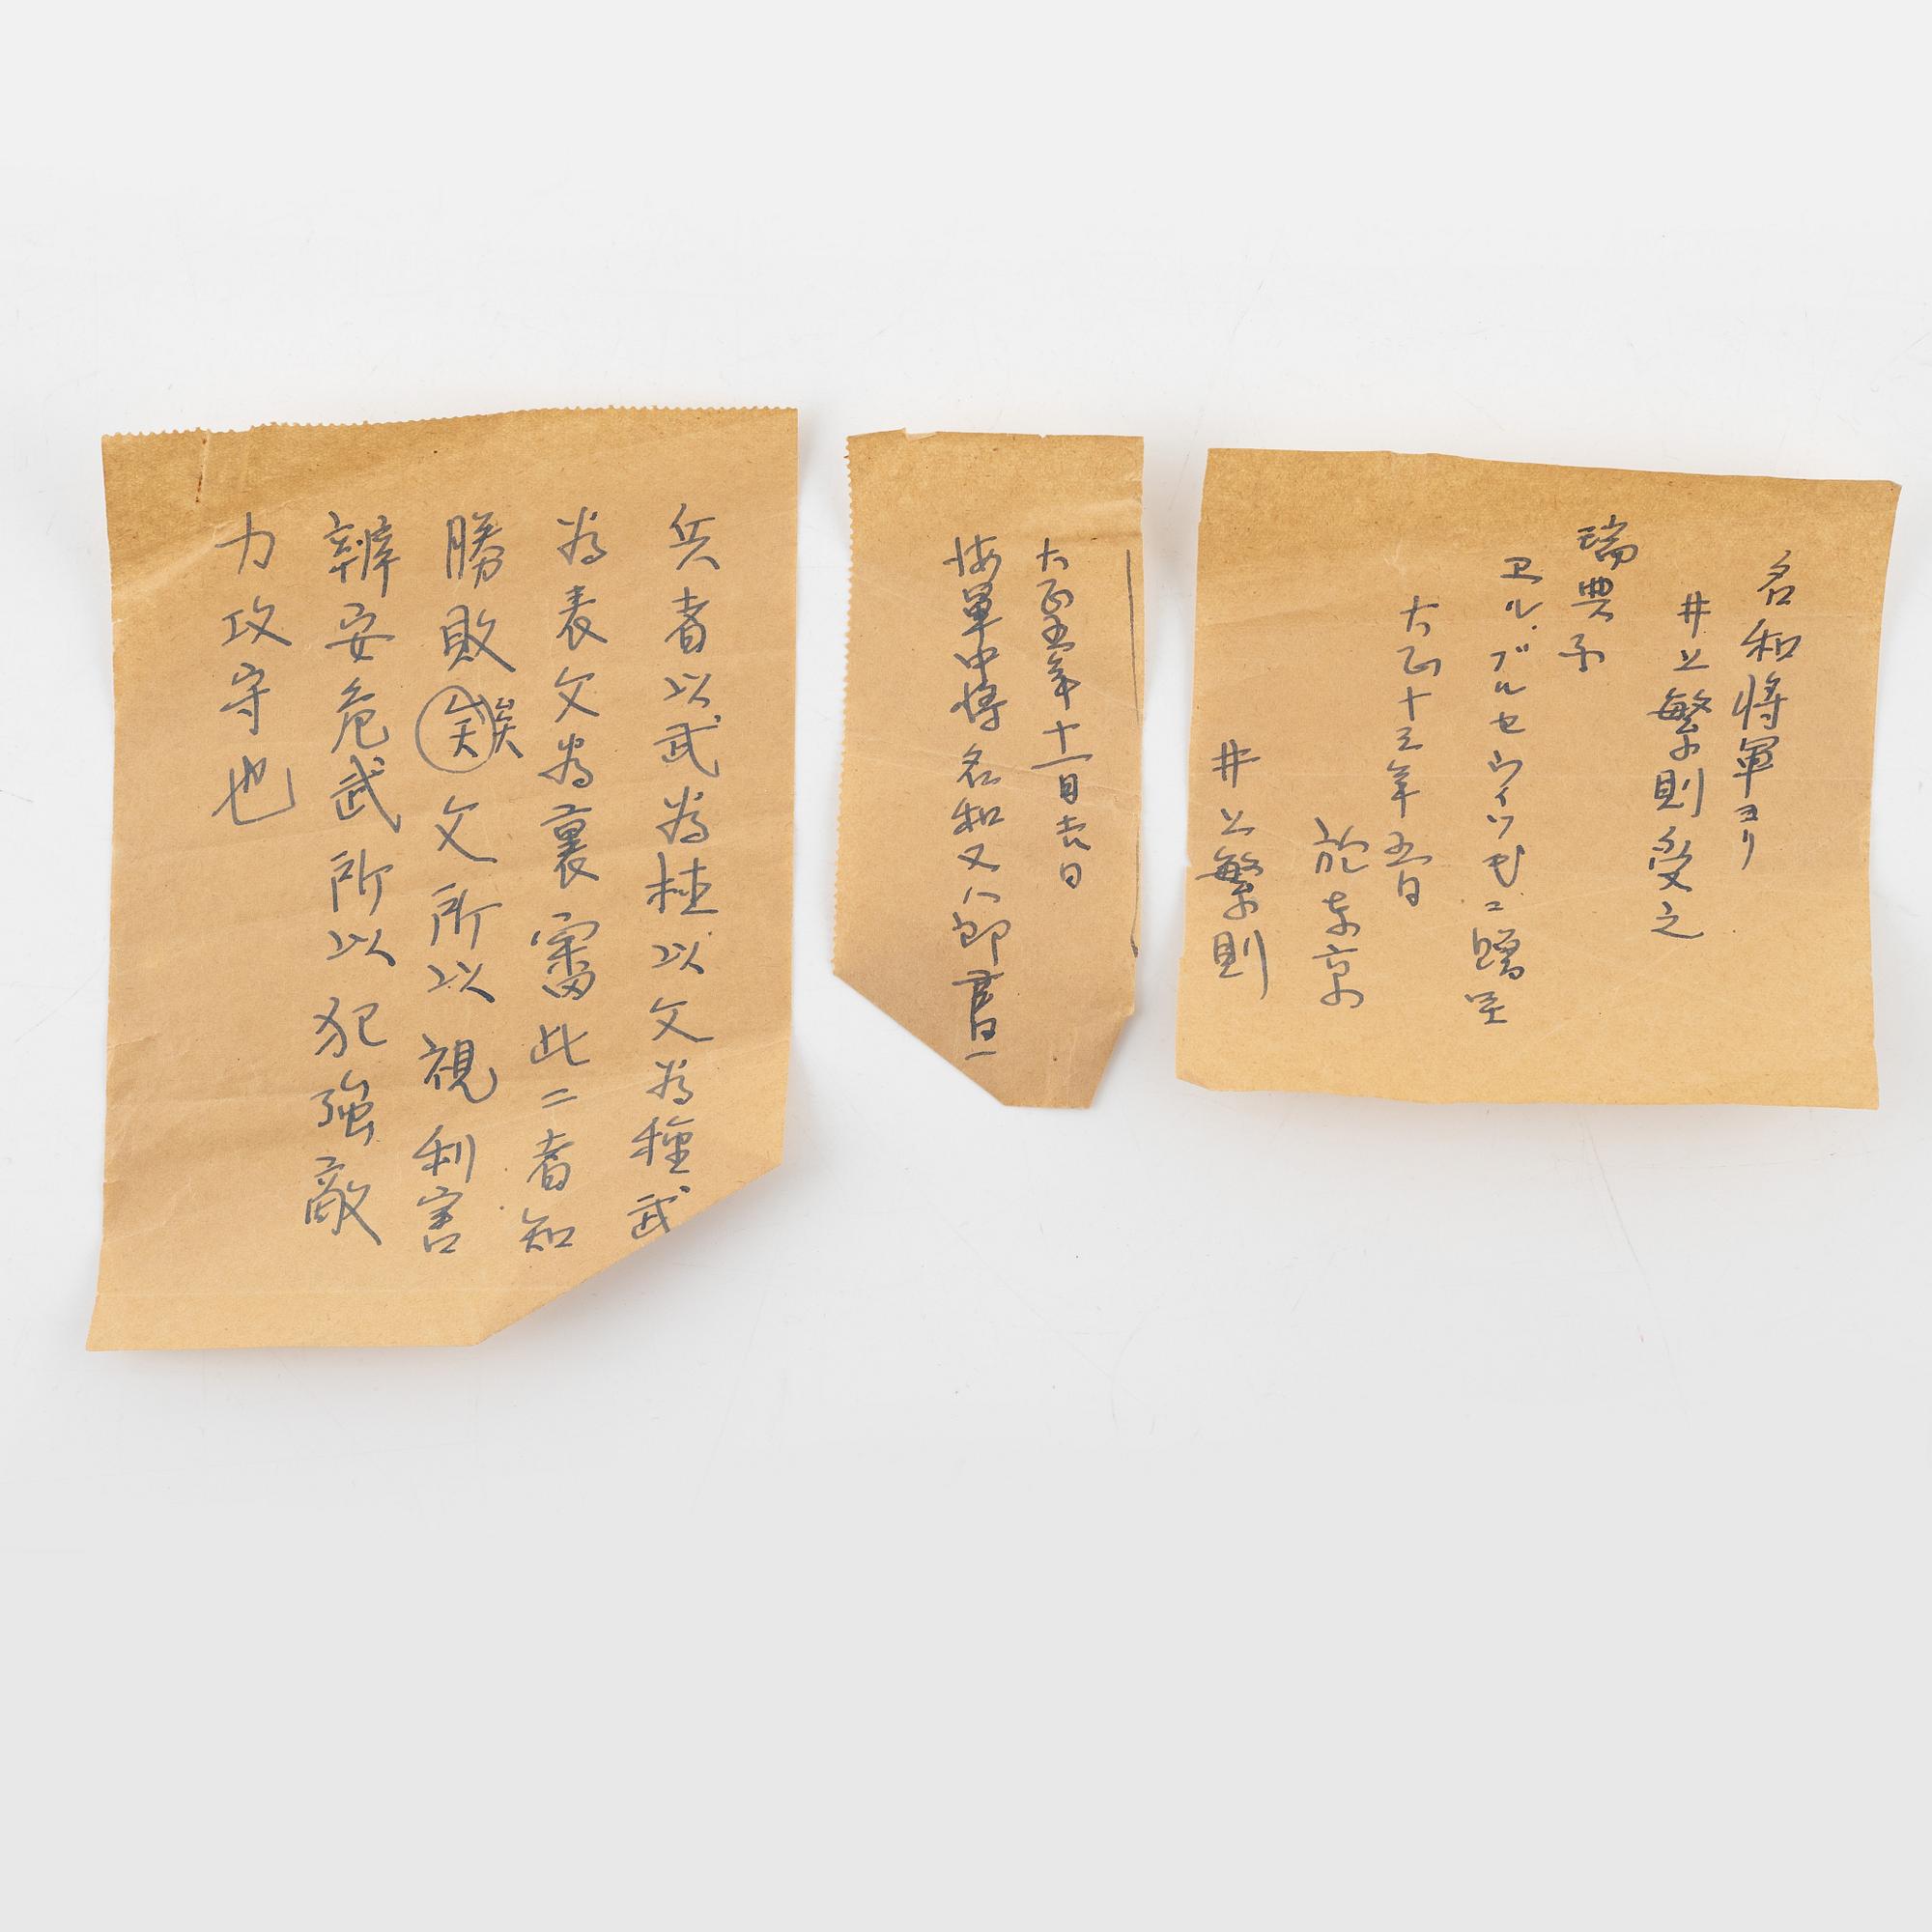 名和将軍ヨリ
井上繁則受之
瑞典
ヱル.ブルセウイツ氏ニ贈呈
大正十三年
於東京
井上繁則
大正五年十一月吉日
海軍中将名和又八郎書
兵者以武為植以文為種武
為表文為裏審此二者知
勝敗矣矣文所以視利害
辨安危武所以犯強敵
力攻守也